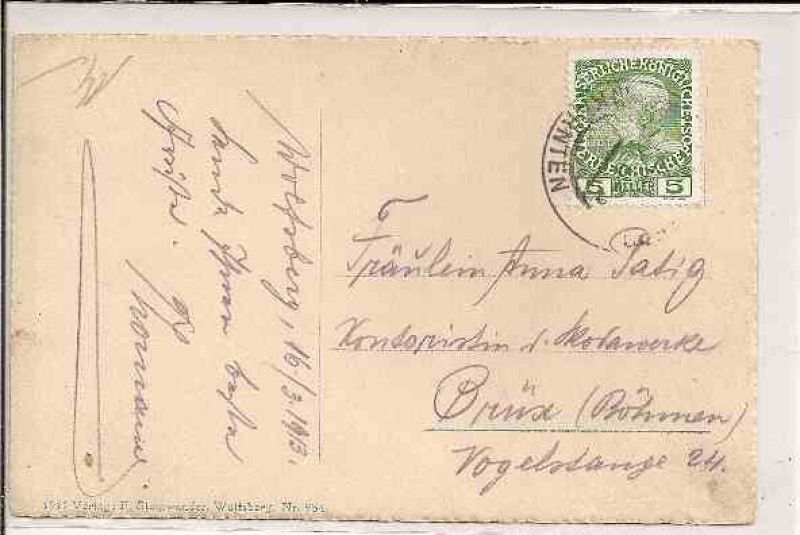 Wolfsberg, 16/3 1913.
sende Ihnen beste
Grüße.
KAISERLICHE KÖNIGLICHE
ÖSTERREICHISCHE
5 HELLER 5
NTEN
Fräulein Anna Patig
Kontoristin d. Skodawerke
Brüx (Böhmen)
Vogelstange 24.
Verlag: F. Wolfsberg. Nr.